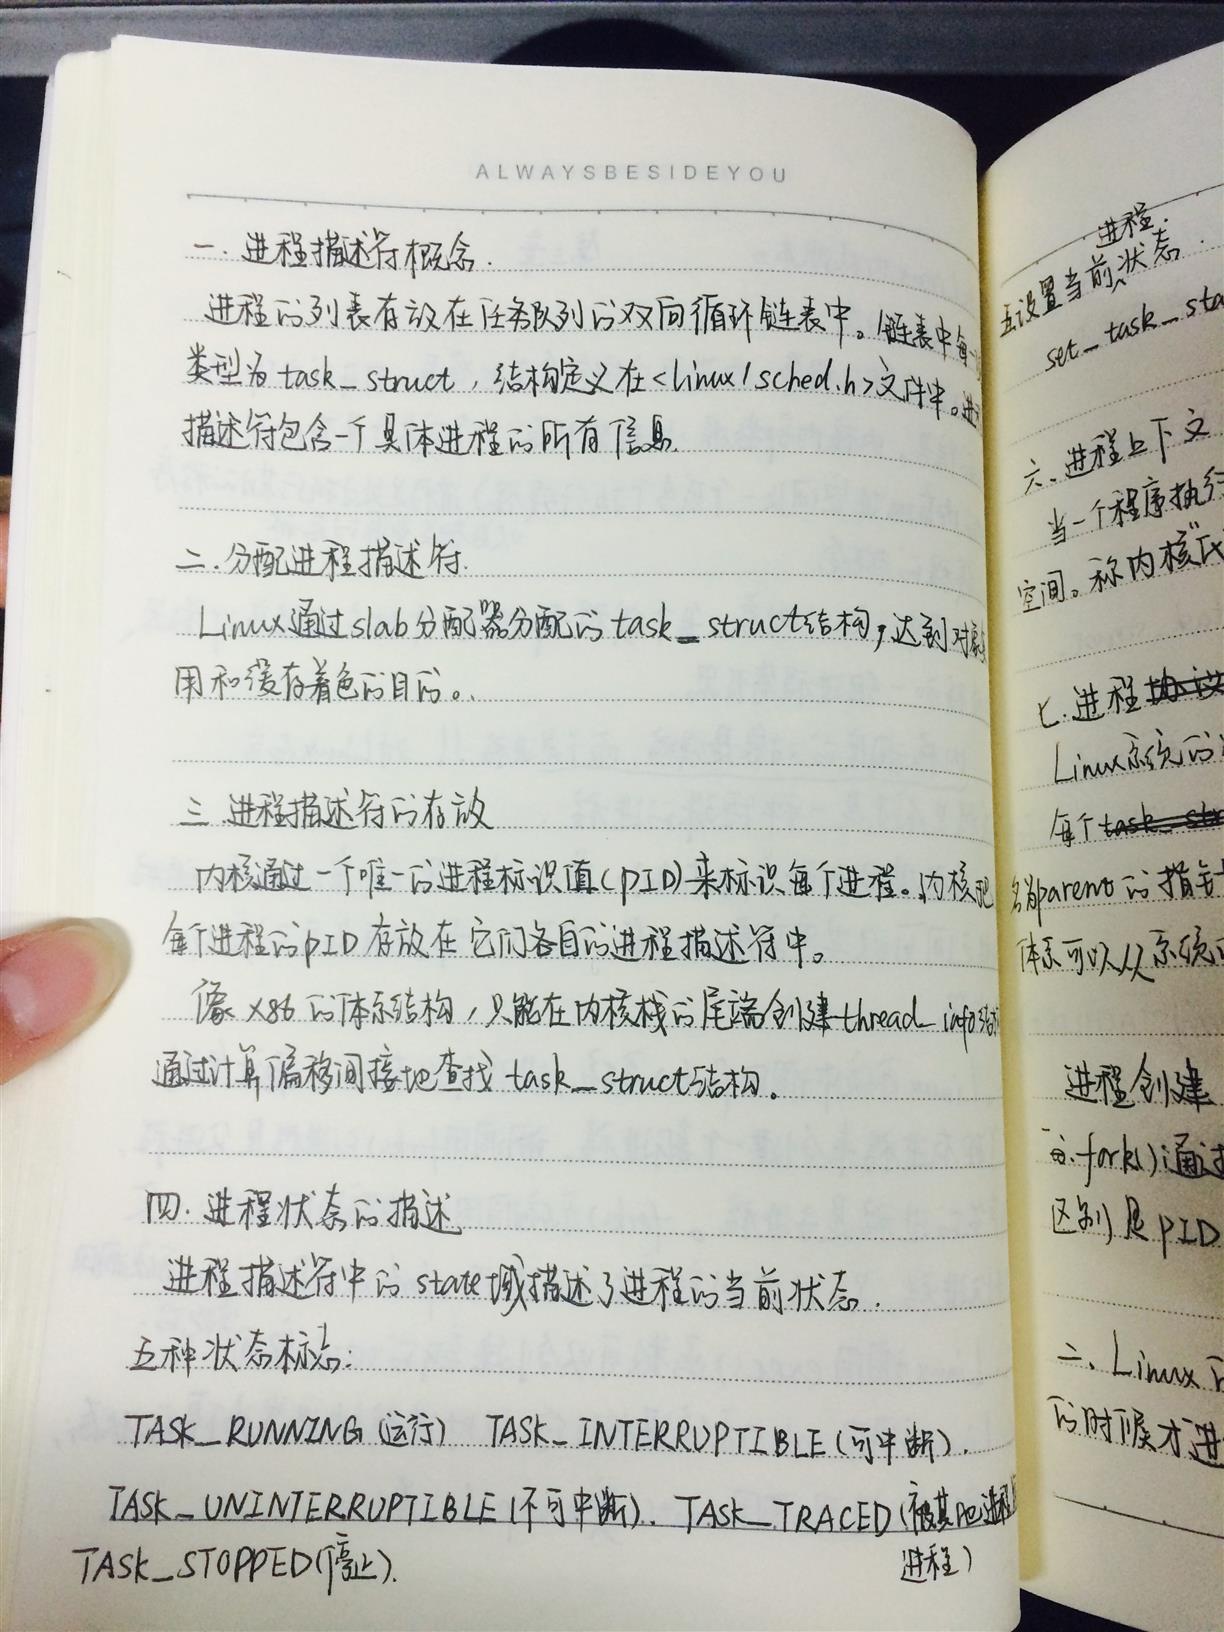 ALWAYSBESIDEYOU
一.进程描述符概念.
进程的列表存放在任务队列的双向循环链表中。链表中每
类型为task_struct，结构定义在<linux/sched.h>文件中。进
描述符包含一个具体进程的所有信息.
二.分配进程描述符.
Linux通过slab分配器分配的task_struct结构，达到对象
用和缓存着色的目的。
三.进程描述符的存放
内核通过一个唯一的进程标识值(PID)来标识每个进程。内核把
每个进程的PID存放在它们各自的进程描述符中。
像x86的体系结构，只能在内核栈的尾端创建thread_info结
通过计算偏移间接地查找task_struct结构。
四.进程状态的描述
进程描述符中的state域描述了进程的当前状态.
五种状态标志:
TASK_RUNNING(运行) TASK_INTERRUPTIBLE(可中断).
TASK_UNINTERRUPTIBLE(不可中断). TASK_TRACED(被其他进程
进程)
TASK_STOPPED(停止).
进程.
五设置当前状态.
set_task_sta
六、进程上下文
当一个程序执行
空间。称内核"代
七.进程
Linux系统的
每个
名为parent的指针
体系可以从系统
进程创建
一.fork()通过
区别是PID
二、Linux
的时候才进